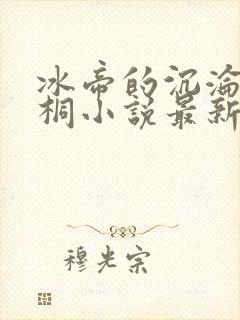 冰帝的沉沦
桐小说最新
穆光宗